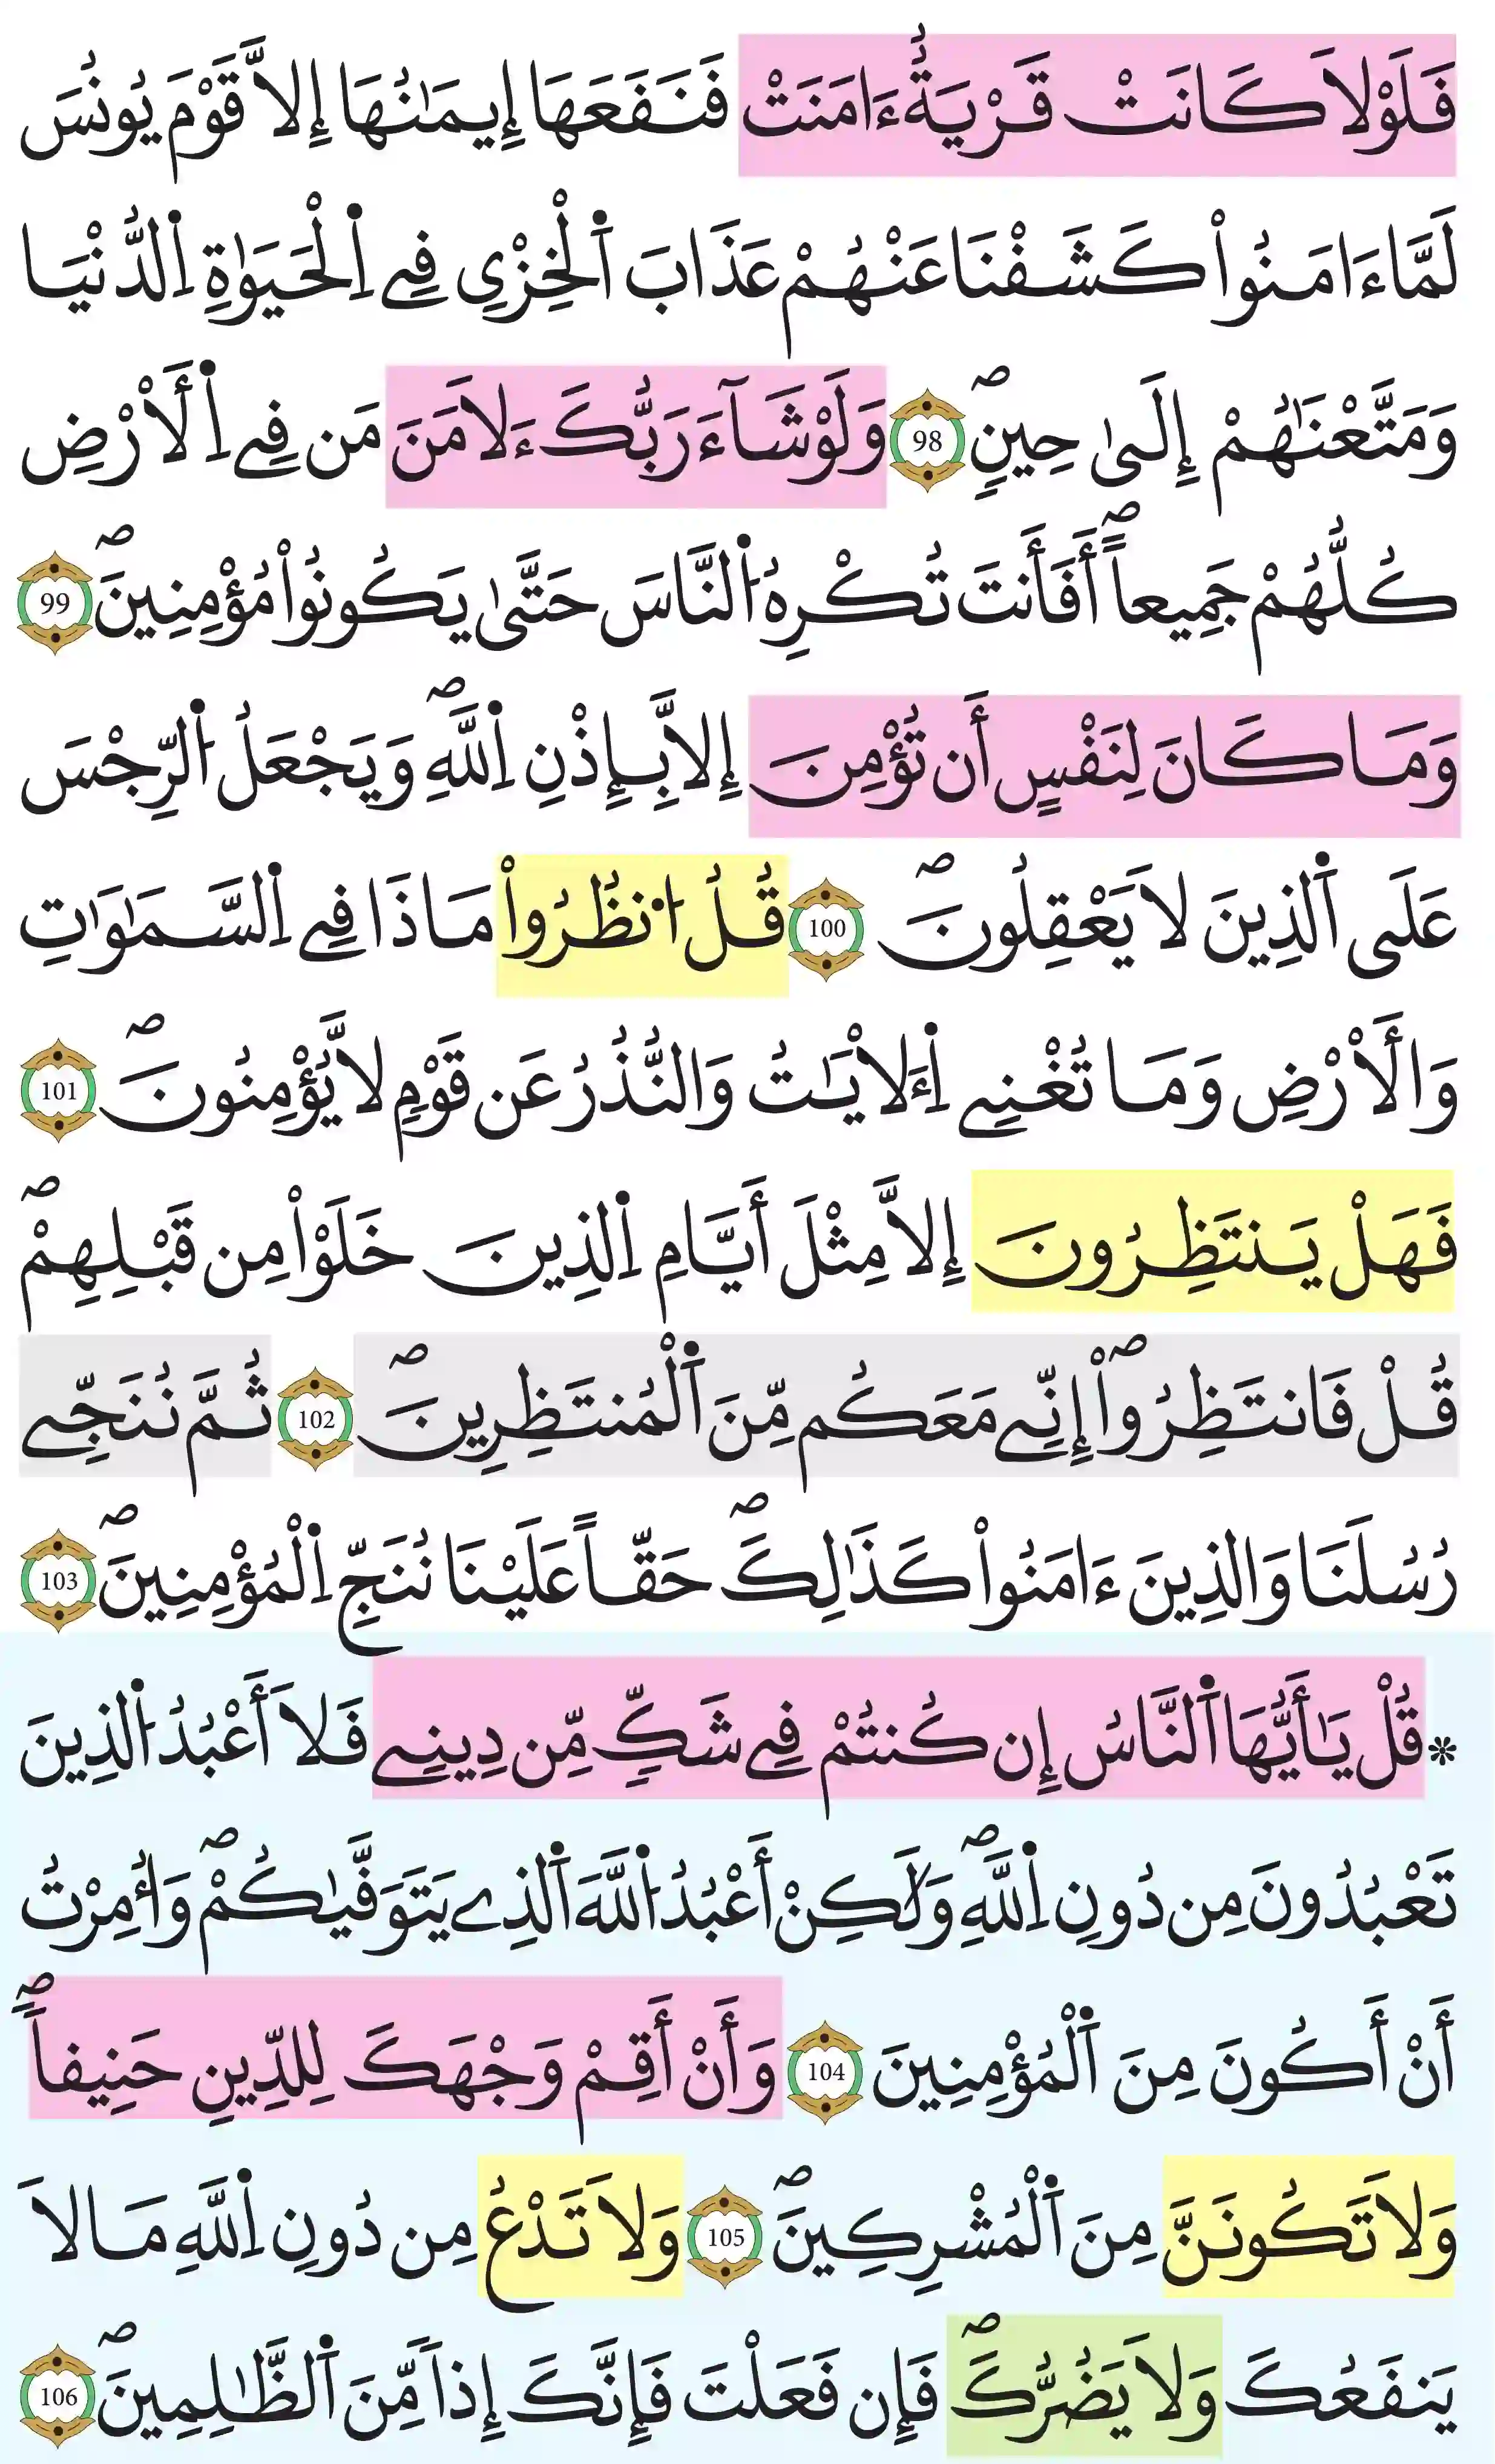 فَلَوْلَا كَانَتْ قَرْيَةٌ ءَامَنَتْ فَنَفَعَهَا إِيمَٰنُهَا إِلَّا قَوْمَ يُونُسَ
لَمَّا ءَامَنُواْ كَشَفْنَا عَنْهُمْ عَذَابَ اَ۬لْخِزْيِ فِے اِ۬لْحَيَوٰةِ اِ۬لدُّنْيَا
وَمَتَّعْنَٰهُمْ إِلَىٰ حِينٍۖ 98 وَلَوْ شَآءَ رَبُّكَ ءَلَامَنَ مَن فِے اِ۬لَارْضِ
كُلُّهُمْ جَمِيعاًۖ أَفَأَنتَ تُكْرِهُ اُ۬لنَّاسَ حَتَّىٰ يَكُونُواْ مُؤْمِنِينَۖ 99
وَمَا كَانَ لِنَفْسٍ أَن تُؤْمِنَ إِلَّا بِإِذْنِ اِ۬للَّهِۖ وَيَجْعَلُ اُ۬لرِّجْسَ
عَلَى اَ۬لذِينَ لَا يَعْقِلُونَۖ 100 قُلُ اُ۟نظُرُواْ مَاذَا فِے اِ۬لسَّمَٰوَٰتِ
وَالَارْضِ وَمَا تُغْنِے اِ۬ءَلَايَٰتُ وَالنُّذُرُ عَن قَوْمٖ لَّا يُؤْمِنُونَۖ 101
فَهَلْ يَنتَظِرُونَ إِلَّا مِثْلَ أَيَّامِ اِ۬لذِينَ خَلَوْاْ مِن قَبْلِهِمْۖ
قُلْ فَانتَظِرُوٓاْۖ إِنِّے مَعَكُم مِّنَ اَ۬لْمُنتَظِرِينَۖ 102 ثُمَّ نُنَجِّے
رُسُلَنَا وَالذِينَ ءَامَنُواْ كَذَٰلِكَۖ حَقّاً عَلَيْنَا نُنَجِّ اِ۬لْمُؤْمِنِينَۖ 103
* قُلْ يَٰأَيُّهَا اَ۬لنَّاسُ إِن كُنتُمْ فِے شَكٍّ مِّن دِينِے فَلَا أَعْبُدُ اُ۬لذِينَ
تَعْبُدُونَ مِن دُونِ اِ۬للَّهِۖ وَلَٰكِنْ أَعْبُدُ اُ۬للَّهَ اَ۬لذِے يَتَوَفَّيٰكُمْۖ وَأُمِرْتُ
أَنْ أَكُونَ مِنَ اَ۬لْمُؤْمِنِينَ 104 وَأَنْ أَقِمْ وَجْهَكَ لِلدِّينِ حَنِيفاًۖ
وَلَا تَكُونَنَّ مِنَ اَ۬لْمُشْرِكِينَۖ 105 وَلَا تَدْعُ مِن دُونِ اِ۬للَّهِ مَا لَا
يَنفَعُكَ وَلَا يَضُرُّكَۖ فَإِن فَعَلْتَ فَإِنَّكَ إِذاً مِّنَ اَ۬لظَّٰلِمِينَۖ 106